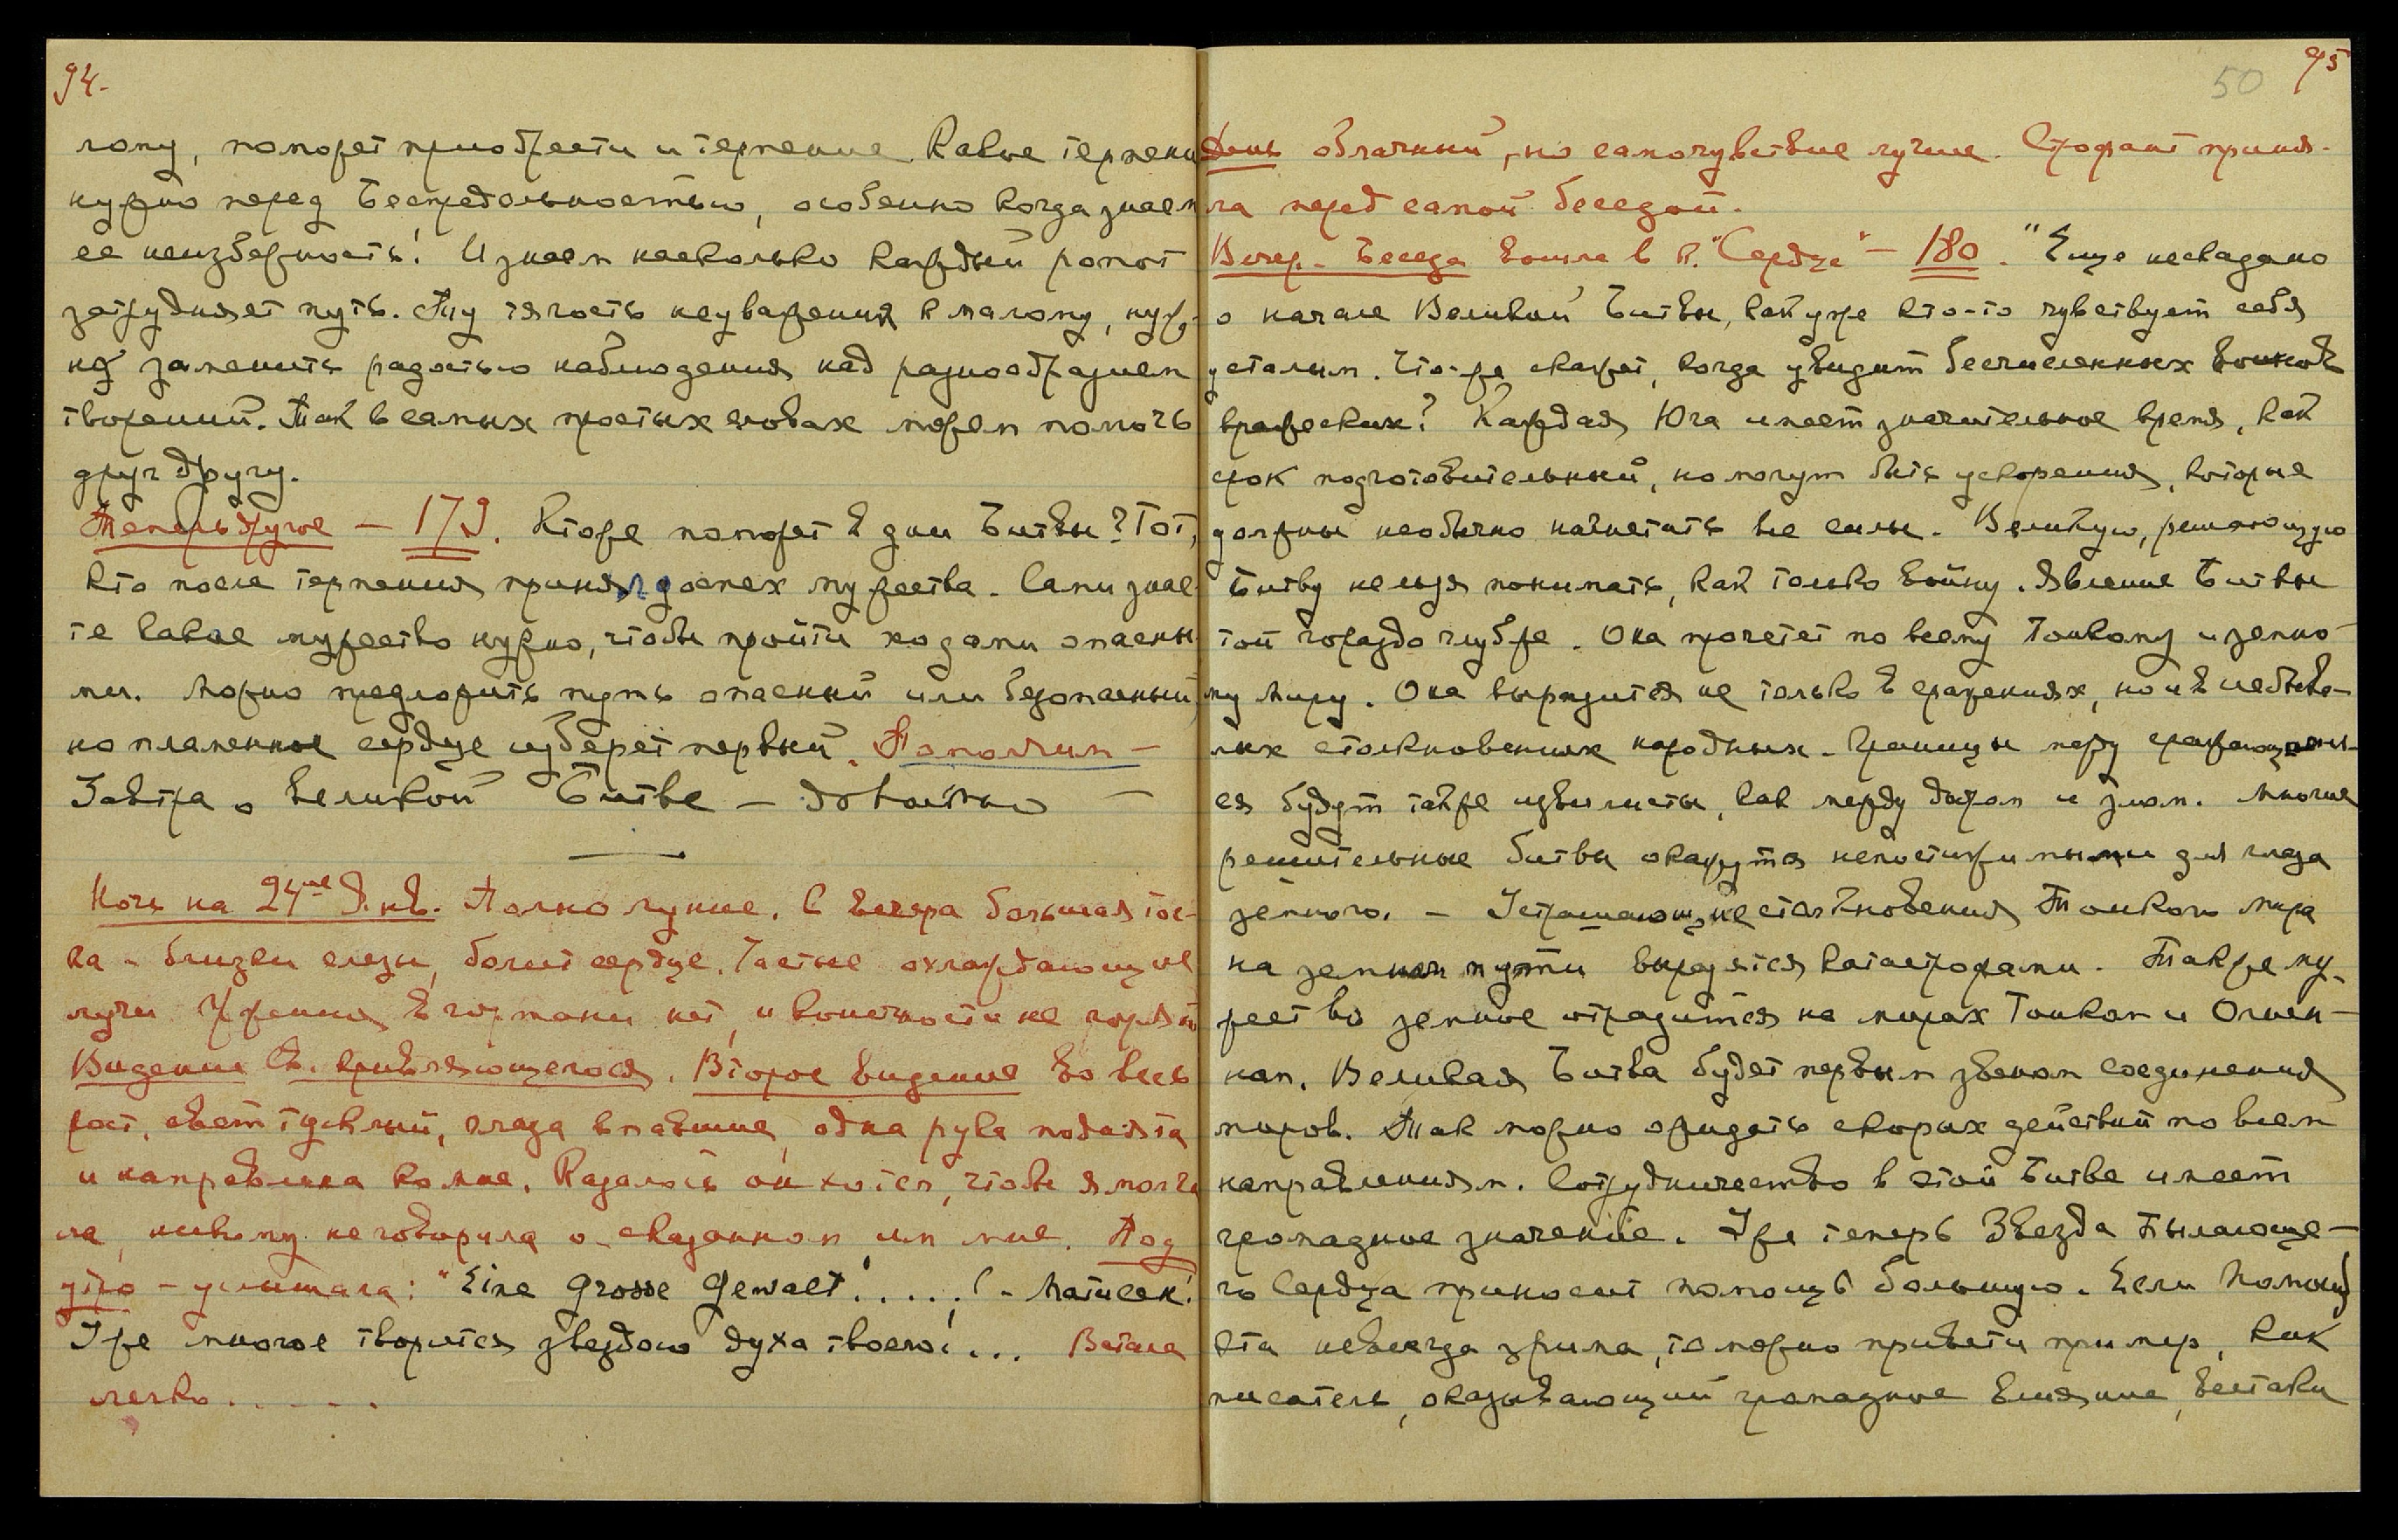 94.
лому, поможет приобрести и терпение. Какое терпение
нужно перед Беспредельностью, особенно когда знаем
ее неизбежность! И знаем насколько каждый ропот
затрудняет путь. Ту тягость неуважения к малому, нуж-
но заменить радостью наблюдения над разнообразием
творений. Так в самых простых словах можем помочь
друг другу.
Теперь другое — 179. Кто же поможет в дни Битвы? Тот,
кто после терпения принял доспех мужества. Сами знае-
те какое мужество нужно, чтобы пройти ходами опасны-
ми. Можно предложить путь опасный или безопасный,
но пламенное сердце изберет первый. Пополчим —
Завтра о Великой Битве — довольно —
Ночь на 24ое Янв. Полнолуние. С вечера большая тос-
ка — близки слезы, болит сердце. Частые охлаждающие
лучи. Жжения в гортани нет, и конечности не горят.
Видение Св. кривляющегося. Второе видение во весь
рост, свет тусклый, глаза впавшие, одна рука поднята
и направлена ко мне. Казалось он хотел, чтобы я молча-
ла, никому не говорила о сказанном им мне. Под
утро — услышала: "Eine Grosse Gewalt!.....! –
Уже многое творится звездою духа твоего!... Встала
легко.....
95
50
День облачный, но самочувствие лучше. Строфант приня-
ла перед самой беседой.
Вечер. Беседа вошла в к. "Сердце" — 180. "Еще не сказано
о начале Великой Битвы, как уже кто-то чувствует себя
усталым. Что же скажет, когда увидит бесчисленных воинов
вражеских? Каждая Юга имеет значительное время, как
срок подготовительный, но могут быть ускорения, которые
должны необычно напитать все силы. Великую, решающую
Битву нельзя понимать, как только войну. Явление Битвы
той гораздо глубже. Она протечет по всему Тонкому и земно-
му миру. Она выразится не только в сражениях, но и в небыва-
лых столкновениях народных. Границы между сражающими-
ся будут также извилисты, как между добром и злом. Многие
решительные битвы окажутся непостижимыми для глаза
земного. — Устрашающие столкновения Тонкого мира
на земном пути выразятся катастрофами. Также му-
жество земное отразится на мирах Тонком и Огнен-
ном. Великая Битва будет первым звеном соединения
миров. Так можно ожидать скорых действий по всем
направлениям. Сотрудничество в этой Битве имеет
громадное значение. Уже теперь Звезда Пылающе-
го Сердца приносит помощь большую. Если помощь
эта не всегда зрима, то можно привести пример, как
писатель, оказывающий громадное влияние, все-таки